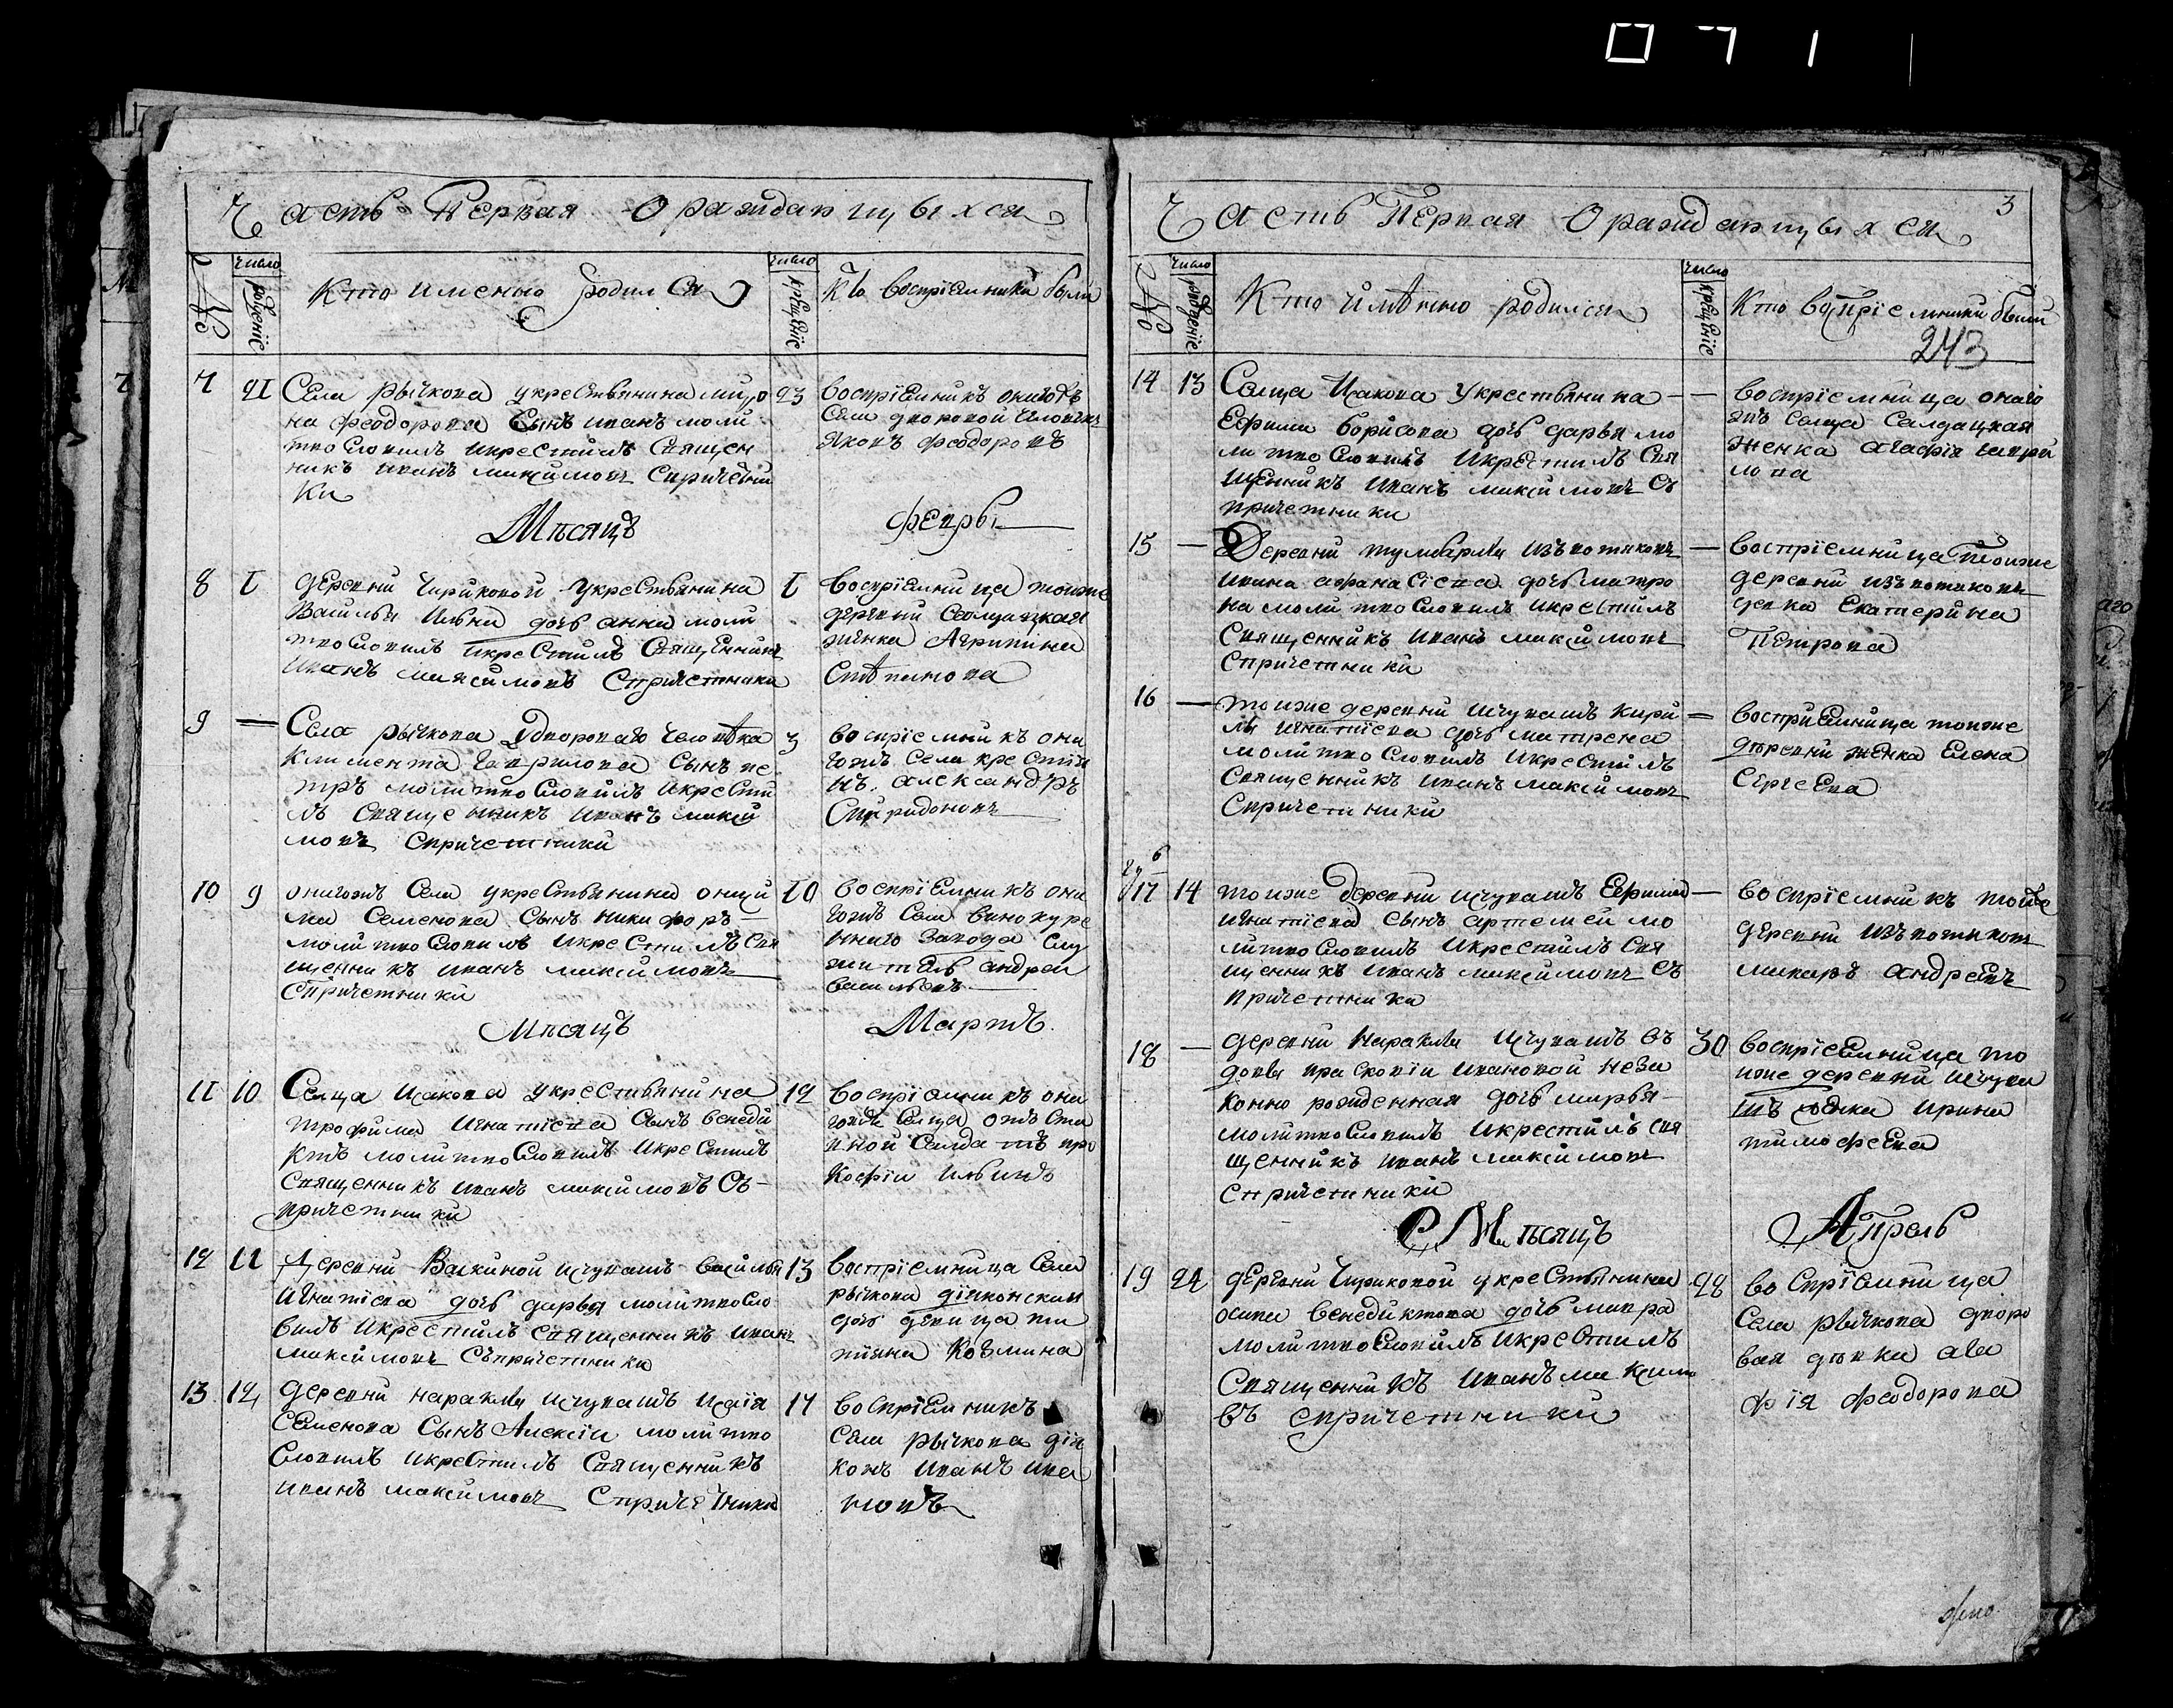 0 7 1
Часть Первая О раждающыхся
№
число
рождениіе
Кто имѣнно родился
число
крещениіе
Кто воспріемники были
7
21
Села рычкова укрестьянина миро
на феодорова Сынъ иванъ моли
твословилъ икрестилъ Священ
никъ иванъ максимовъ Спричетни
ки
23
воспріемникъ онагожъ
Села дворовой человекъ
яковъ феодоровъ
Мѣсяцъ
февры
8
1
деревни Чириковой укрестьянина
Василья Ильна дочь анна моли
твословилъ икрестилъ Священникъ
иванъ максимовъ Спричетники
1
воспріемница тоиже
деревни Солдацкая
жинка Агрипина
Степанова
9
—
Села рычкова Удвороваго человѣка
климента гаврилова Сынъ пе
тръ молитвословилъ икрести
лъ Священникъ иванъ макси
мовъ Спричетники
3
воспріемникъ она
гожъ Села крестья
нъ александръ
Спиридоновъ
10
9
онагожъ Села укрестьянина ониси
ма Семенова Сынъ никифоръ
молитвословилъ икрестилъ Свя
щенникъ иванъ максимовъ
Спричетники
10
воспріемникъ она
гожъ Села винокуре
ннаго завода слу
житель андреи
васильевъ
Мѣсяцъ
Мартъ.
11
10
Сельца Исакова укрестьянина
трофима Игнатіева Сынъ венеди
ктъ молитвословилъ икрестилъ
Священникъ иванъ максимовъ Съ
причетники
12
воспріемникъ она
гожъ Сельца отъста
вной Салдатъ про
кофіи ильинъ
12
11
Деревни Васкиной ичувашъ василья
Игнатіева дочь дарья молитвосло
вилъ икрестилъ священникъ иванъ
максимовъ Съпричетники
13
воспріемница Села
рычкова діяконская
дочь девица та
тияна Козмина
13
12
деревни наратли ичувашъ исаія
Семенова Сынъ Алексіи молитво
словилъ икрестилъ Священникъ
иванъ максимовъ Спричетники
17
воспріемникъ
Села рычкова дія
конъ иванъ ива
новъ
3
Часть Первая О раждающыхся
№
число
рождениіе
Кто имѣнно родился
число
крещениіе
Кто воспріемники были
243
14
13
Сельца Исакова укрестьянина
Ефима борисова дочь дарья мо
литвословилъ икрестилъ Свя
щенникъ иванъ максимовъ Съ
причетники
—
воспріемница онаго
жъ сельца Салдацкая
женка агафія гаври
лова
15
—
Деревни тумбарли изъвотяковъ
ивана афанасіева дочь матро
на молитвословилъ икрестилъ
Священникъ иванъ максимовъ
Спричетники
—
воспріемница тоиже
деревни изъвотяковъ
девка Екатерина
Петрова
16
—
тоиже деревни ичувашъ кири
лы игнатіева дочь матрена
молитвословилъ икрестилъ
Священникъ иванъ максимовъ
Спричетники
—
воспріемница тоиже
деревни женка Елена
Сергеева
17
14
тоиже деревни ичувашъ Ефима
игнатіева сынъ артемеи мо
литвословилъ икрестилъ Свя
щенникъ иванъ максимовъ Съ
причетники
—
воспріемникъ тойже
деревни изъвотяковъ
макаръ андреевъ
18
—
деревни наратли ичувашъ въ
довы прасковіи ивановой неза
конно рожденная дочь марья
молитвословилъ икрестилъ свя
щенникъ иванъ максимовъ
спричетники
30
воспріемница то
иже деревни ичува
шъ женка ирина
тимофеева
Мѣсяцъ
Апрель
19
24
деревни Чириковой укрестьянина
осипа венедиктова дочь мавра
молитвословилъ икрестилъ
Священникъ иванъ максимо
въ спричетники
28
воспріемница
Села рычкова дворо
вая девка ага
фія феодорова